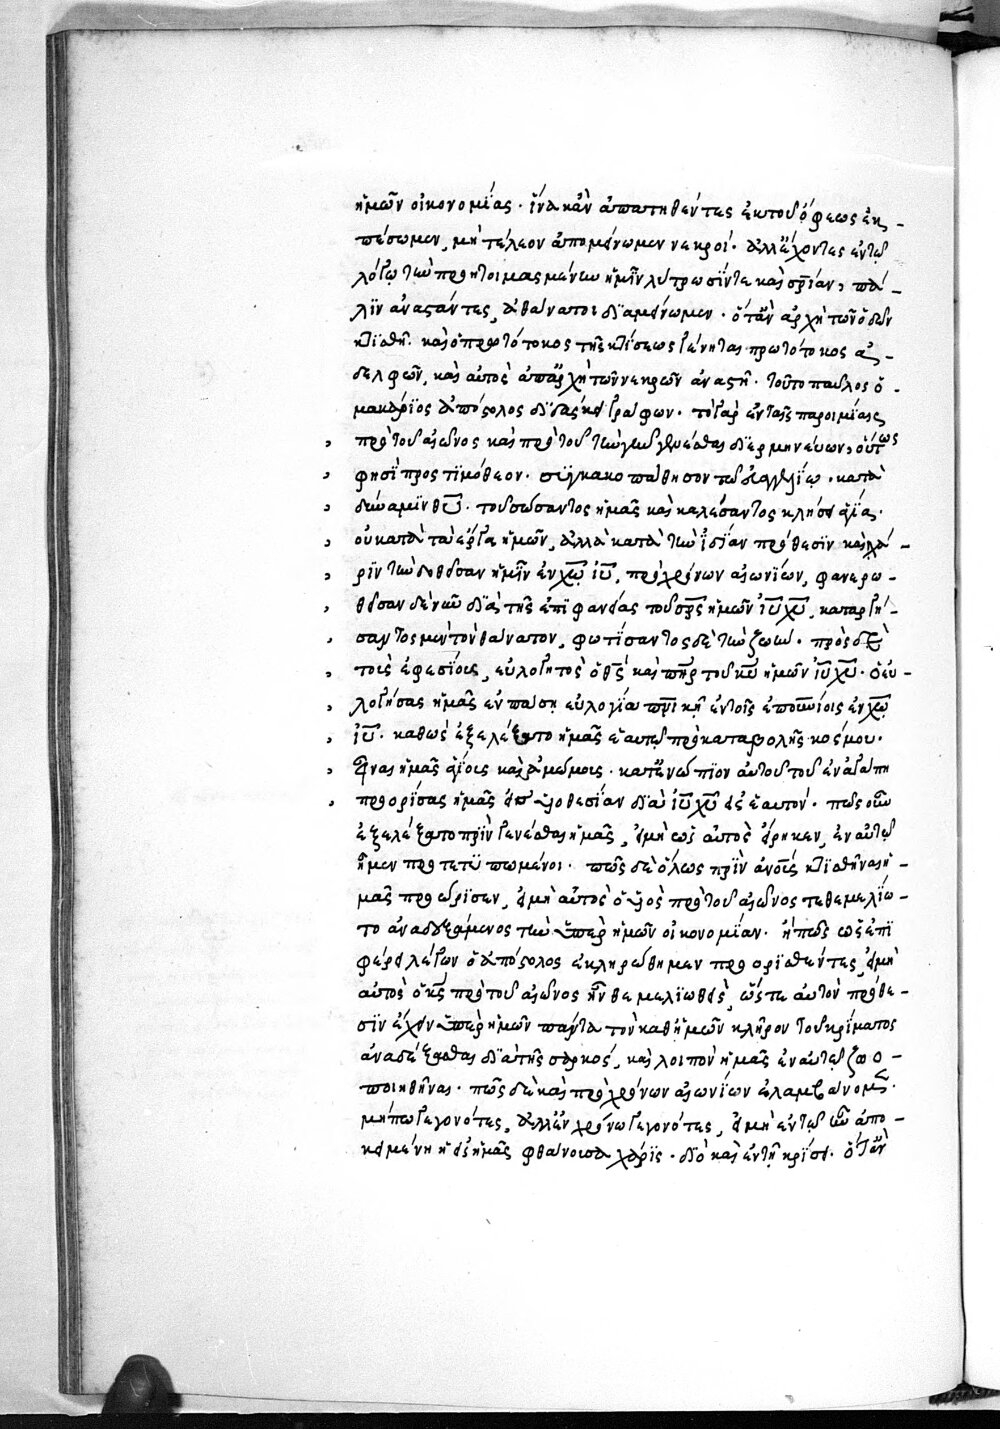 ἡμῶν οἰκονομίας· ἵνα κἂν ἀπατηθέντες ἐκ τοῦ ὄφεως ἐκ-
πέσωμεν, μὴ τέλεον ἀπομένωμεν νεκροί· ἀλλ' ἔχοντες ἐν τῷ
λόγῳ τὴν προητοιμασμένην ἡμῖν λύτρωσίν τε καὶ σρίαν, πά-
λιν ἀναστάντες, ἀθάνατοι διαμένωμεν· ὅταν ἀρχὴ τῶν ὁδῶν
κτισθῇ· καὶ ὁ πρωτότοκος τῆς κτίσεως γένηται πρωτότοκος ἀ-
δελφῶν, καὶ αὐτὸς ἀπαρχὴ τῶν νεκρῶν ἀναστῇ· τοῦτο παῦλος ὁ
μακάριος ἀπόστολος διδάσκει γράφων· τὸ γὰρ ἐν ταῖς παροιμίαις
πρὸ τοῦ αἰῶνος καὶ πρὸ τοῦ τὴν γῆν γενέσθαι διερμηνεύων, οὕτως
φησὶ πρὸς τιμόθεον· συγκακοπάθησον τῷ εὐαγγελίῳ· κατὰ
δύναμιν θῦ· τοῦ σώσαντος ἡμᾶς καὶ καλέσαντος κλήσει ἁγίᾳ·
οὐ κατὰ τὰ ἔργα ἡμῶν, ἀλλὰ κατὰ τὴν ἰδίαν πρόθεσιν καὶ χά-
ριν τὴν δοθεῖσαν ἡμῖν ἐν χῶ ιῦ, πρὸ χρόνων αἰωνίων, φανερω-
θεῖσαν δὲ νῦν διὰ τῆς ἐπιφανείας τοῦ σρς ἡμῶν ιῦ χῦ, καταργή-
σαντος μὲν τὸν θάνατον, φωτίσαντος δὲ τὴν ζωήν· πρὸς δὲ
τοὺς ἐφεσίους, εὐλογητὸς ὁ θς καὶ πηρ τοῦ κῦ ἡμῶν ιῦ χῦ· ὁ εὐ-
λογήσας ἡμᾶς ἐν πάσῃ εὐλογίᾳ πνικῇ ἐν τοῖς ἐπουνίοις ἐν χῶ
ιῦ· καθὼς ἐξελέξατο ἡμᾶς ἐν αὐτῷ πρὸ καταβολῆς κόσμου·
εἶναι ἡμᾶς ἁγίους καὶ ἀμώμους· κατενώπιον αὐτοῦ τοῦ ἐν ἀγάπῃ
προορίσας ἡμᾶς εἰς υἱοθεσίαν διὰ ιῦ χῦ εἰς ἑαυτόν· πῶς οὖν
ἐξελέξατο πρὶν γενέσθαι ἡμᾶς, εἰ μὴ ὡς αὐτὸς εἴρηκεν, ἐν αὐτῷ
ἦμεν προτετυπωμένοι· πῶς δὲ ὅλως πρὶν ἀνους κτισθῆναι ἡ-
μᾶς προώρισεν, εἰ μὴ αὐτὸς ὁ υἱὸς πρὸ τοῦ αἰῶνος τεθεμελίω-
το ἀναδεξάμενος τὴν ὑπὲρ ἡμῶν οἰκονομίαν· ἢ πῶς ὡς ἐπι
φέρει λέγων ὁ ἀπόστολος ἐκληρώθημεν προορισθέντες, εἰ μὴ
αὐτὸς ὁ κς πρὸ τοῦ αἰῶνος ἦν θεμελιωθεὶς, ὥστε αὐτὸν πρόθε-
σιν ἔχειν ὑπὲρ ἡμῶν πάντα τὸν καθ' ἡμῶν κλῆρον τοῦ κρίματος
ἀναδέξασθαι διὰ τῆς σαρκός, καὶ λοιπὸν ἡμᾶς ἐν αὐτῷ ζωο-
ποιηθῆναι· πῶς δὲ καὶ πρὸ χρόνων αἰωνίων ἐλαμβάνομεν·
μήπω γεγονότες, ἀλλ' ἐν χρόνῳ γεγονότες, εἰ μὴ ἐν τῷ χῶ ἀπο-
κειμένη ἡ εἰς ἡμᾶς φθάνουσα χάρις· διὸ καὶ ἐν τῇ κρίσει· ὅταν